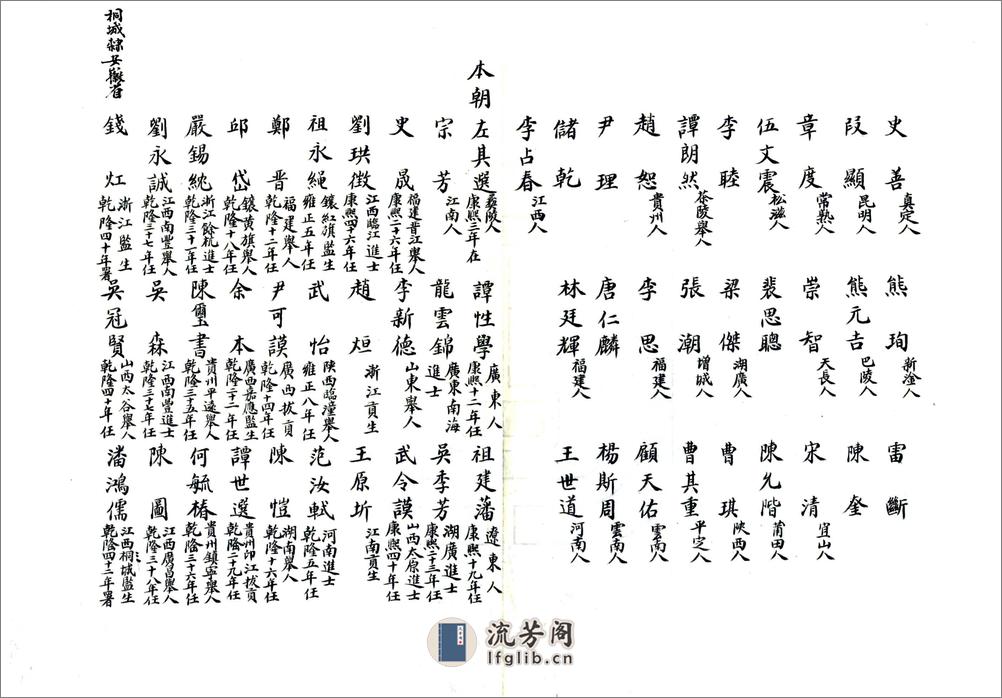 史善 真定人 熊珣 新淦人 雷斷
段顯 昆明人 熊元吉 巴陵人 陳奎
章度 常熟人 崇智 天長人 宋清 宜山人
伍文震 松滋人 裴思聰 陳允階 莆田人
李睦 梁傑 湖廣人 曹琪 陝西人
譚朗然 茶陵舉人 張潮 增城人 曹其重 平定人
趙恕 貴州人 李思 福建人 顧天佑 雲南人
尹理 唐仁麟 楊斯周 雲南人
儲乾 林廷輝 福建人 王世道 河南人
李占春 江西人
本朝左其選 襄陵人 康熙三年在 譚性學 廣東人 康熙十二年任 祖建藩 遼東人 康熙十九年任
宗芳 江南人 龍雲錦 廣東南海進士 吳季芳 湖廣進士 康熙二十三年任
史晟 福建晋江舉人 康熙二十六年任 李新德 山東舉人 武令謨 山西太原進士 康熙四十年任
劉珙徵 江西臨江進士 康熙四十六年任 趙烜 浙江貢生 王原圻 江南貢生
祖永繩 鑲紅旗監生 雍正五年任 武怡 陝西臨潼舉人 雍正八年任 范汝軾 河南進士 乾隆五年任
鄭晋 福建舉人 乾隆十二年任 尹可謨 廣西拔貢 乾隆十四年任 陳愷 湖南舉人 乾隆十六年任
邱岱 鑲黄旗舉人 乾隆十八年任 余本 廣西嘉應監生 乾隆二十一年任 譚世選 貴州印江拔貢 乾隆二十九年任
嚴錫統 浙江餘杭進士 乾隆三十一年任 陳璽書 貴州平遠舉人 乾隆三十五年任 何毓椿 貴州鎮寧舉人 乾隆三十六年任
劉永誠 江西南豐舉人 乾隆三十七年任 吳森 江西南豐進士 乾隆三十七年任 陳圖 江西廣昌舉人 乾隆三十八年任
錢灴 浙江監生 乾隆四十年署 吳冠賢 山西太谷舉人 乾隆四十年任 潘鴻儒 江西桐城監生 乾隆四十二年署
桐城隸安徽省
流芳阁
lfglib.cn